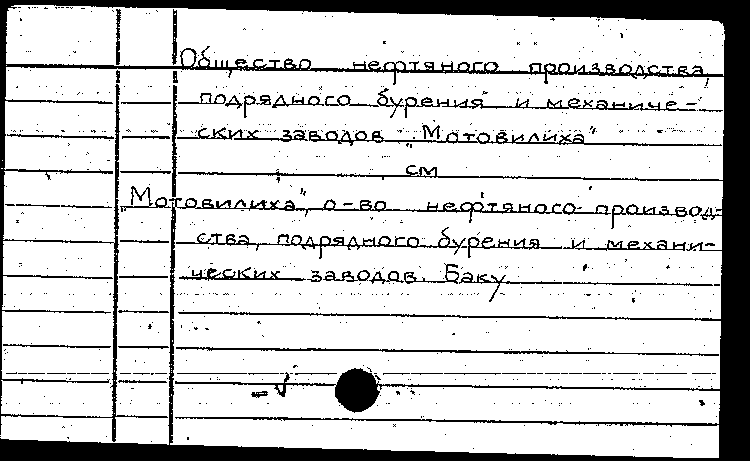 Общество нефтяного производства,
подрядного бурения и механиче-
ских заводов „Мотовилиха"
см
„Мотовилиха", о-во нефтяного производ-
ства, подрядного бурения и механи-
ческих заводов. Баку